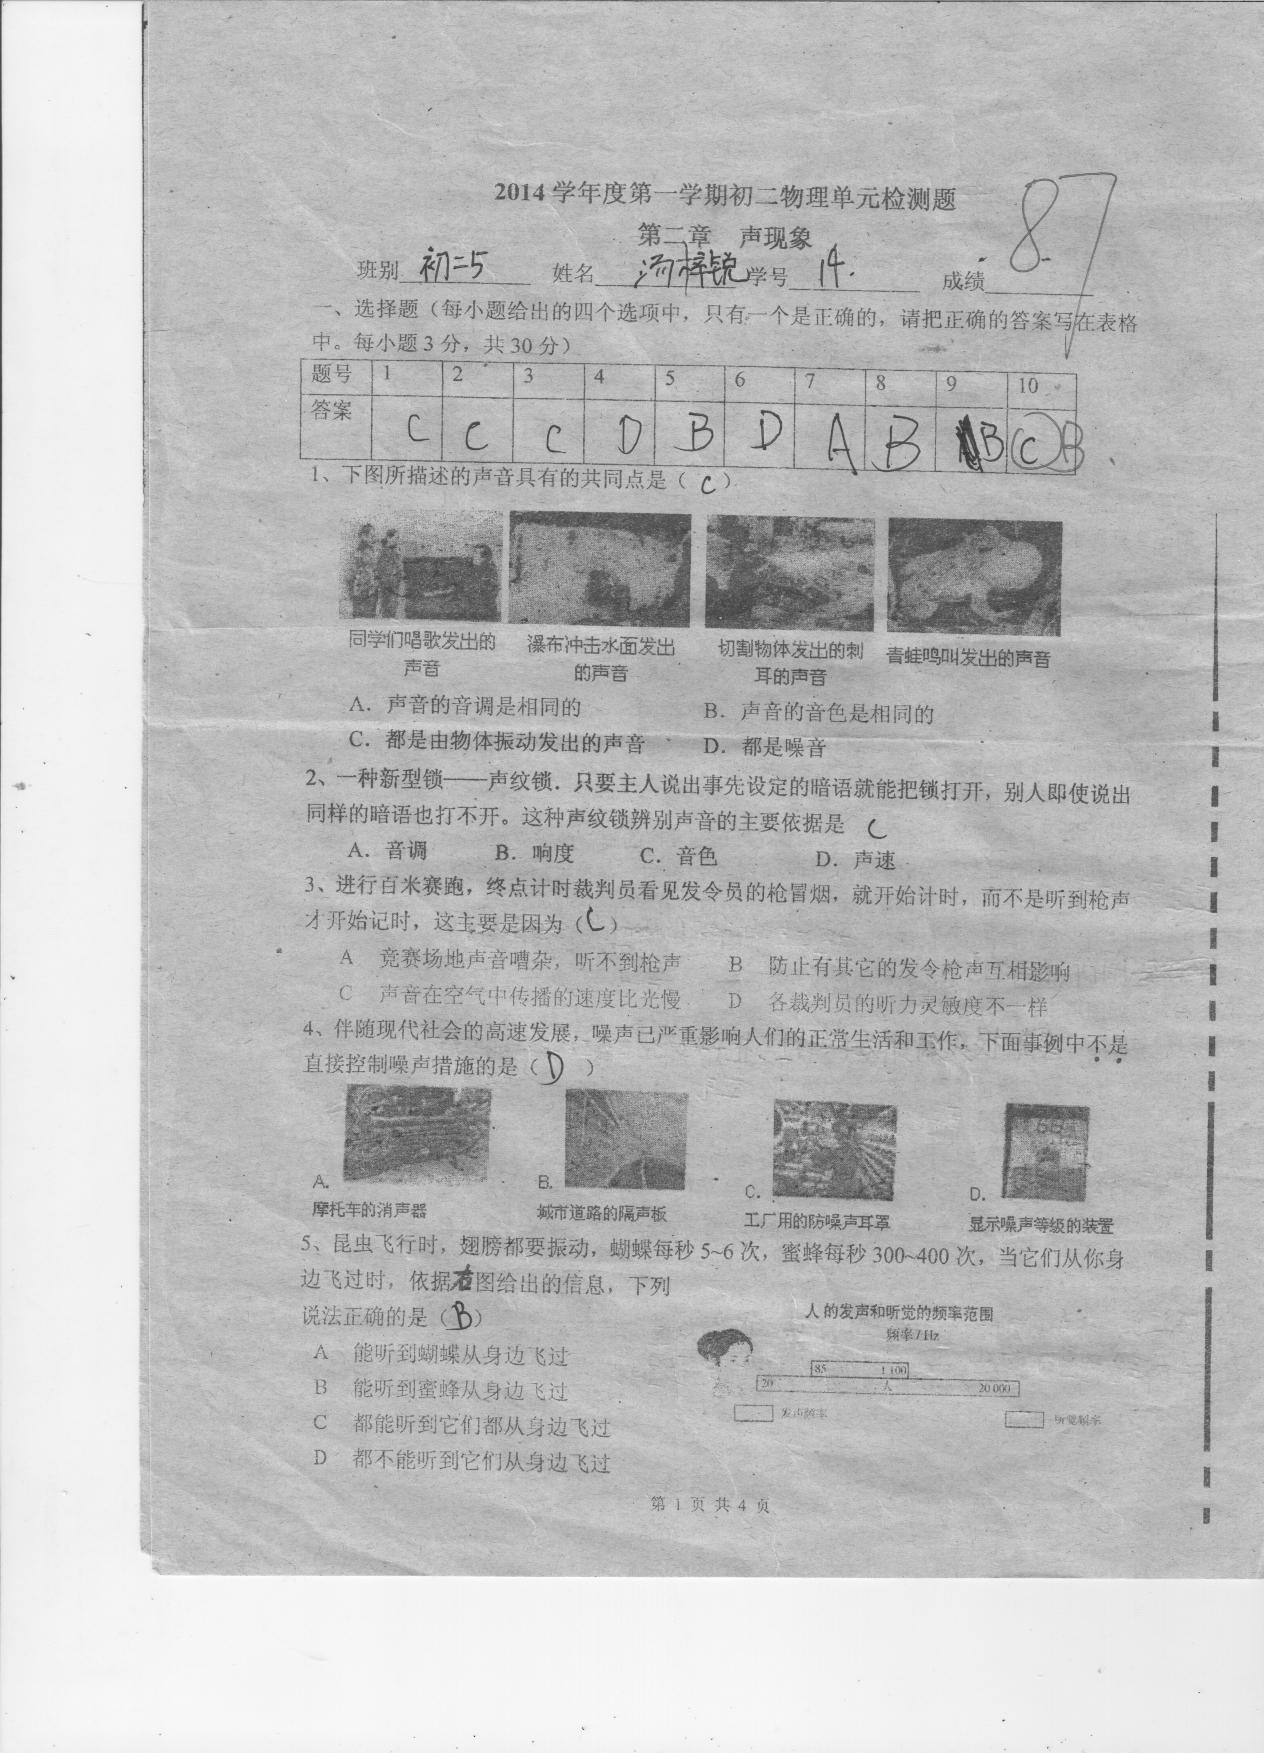 2014 学年度第一学期初二物理单元检测题
第二章 声现象
班别 初二5 姓名 汤梓锐 学号 14. 成绩 87
一、选择题（每小题给出的四个选项中，只有一个是正确的，请把正确的答案写在表格
中。每小题 3 分，共 30 分）
题号 1 2 3 4 5 6 7 8 9 10
答案 C C C D B D A B B C B
1、下图所描述的声音具有的共同点是（ C ）
同学们唱歌发出的 瀑布冲击水面发出 切割物体发出的刺 青蛙鸣叫发出的声音
声音 的声音 耳的声音
A．声音的音调是相同的 B．声音的音色是相同的
C．都是由物体振动发出的声音 D．都是噪音
2、一种新型锁——声纹锁．只要主人说出事先设定的暗语就能把锁打开，别人即使说出
同样的暗语也打不开。这种声纹锁辨别声音的主要依据是 C
A．音调 B．响度 C．音色 D．声速
3、进行百米赛跑，终点计时裁判员看见发令员的枪冒烟，就开始计时，而不是听到枪声
才开始记时，这主要是因为（ C ）
A 竞赛场地声音嘈杂，听不到枪声 B 防止有其它的发令枪声互相影响
C 声音在空气中传播的速度比光慢 D 各裁判员的听力灵敏度不一样
4、伴随现代社会的高速发展，噪声已严重影响人们的正常生活和工作，下面事例中不是
直接控制噪声措施的是（ D ）
66
A. B. C. D.
摩托车的消声器 城市道路的隔声板 工厂用的防噪声耳罩 显示噪声等级的装置
5、昆虫飞行时，翅膀都要振动，蝴蝶每秒 5~6 次，蜜蜂每秒 300~400 次，当它们从你身
边飞过时，依据右图给出的信息，下列
说法正确的是（ B ）
人的发声和听觉的频率范围
频率/Hz
85 1 100
20 人 20 000
发声频率 听觉频率
A 能听到蝴蝶从身边飞过
B 能听到蜜蜂从身边飞过
C 都能听到它们都从身边飞过
D 都不能听到它们从身边飞过
第 1 页 共 4 页